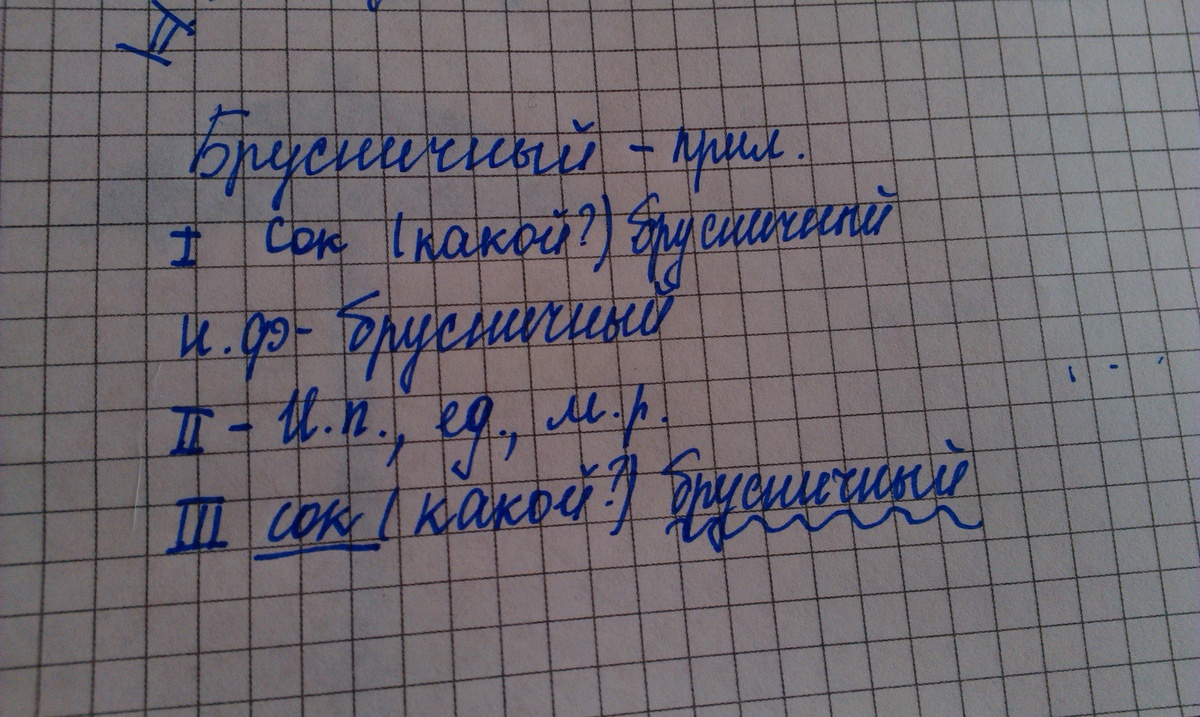 II
Брусничный - прил.
I сок (какой?) брусничный
н.ф- брусничный
II - И.п., ед., м.р.
III сок (какой?) брусничный